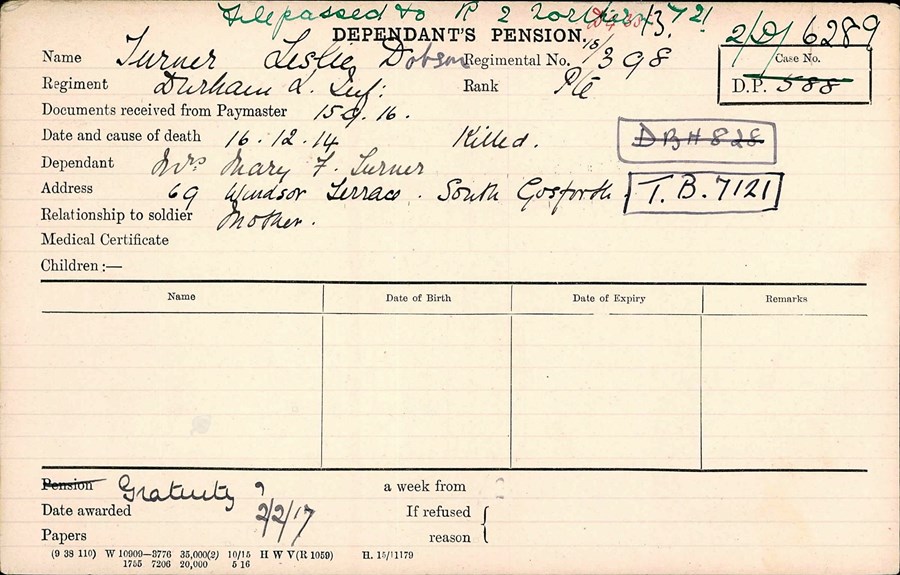 File passed to R 2 Northern 13.7.21
DEPENDANT'S PENSION.
2/D/6289
Name Turner Leslie Dobson Regimental No. 18/398
Case No.
D.P. 588
Regiment Durham L. Inf: Rank Pte
Documents received from Paymaster 15.9.16.
Date and cause of death 16.12.14 Killed.
DBH 828
Dependant Mrs Mary F. Turner
Address 69 Windsor Terrace. South Gosforth
T.B.7121
Relationship to soldier Mother.
Medical Certificate
Children:—
Name Date of Birth Date of Expiry Remarks
Pension Gratuity ? a week from
Date awarded 2/2/17 If refused
Papers reason {
(9 38 110) W 10909—3776 35,000(2) 10/15 H W V(R 1059) H. 15/11179
1755 7206 20,000 5 16